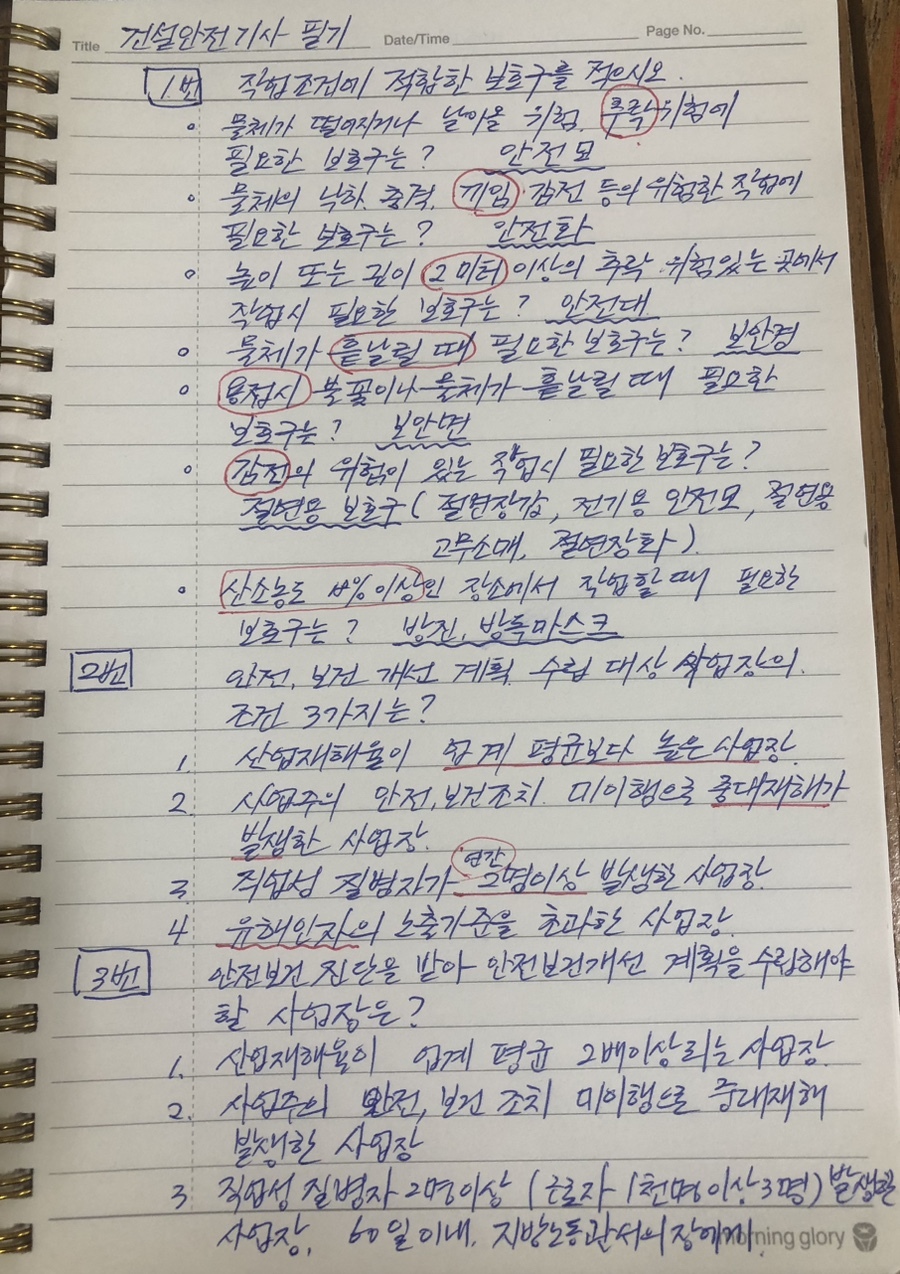 Title 건설안전기사 필기 Date/Time Page No.
1번 작업조건에 적합한 보호구를 적으시오.
물체가 떨어지거나 날아올 위험. 추락위험에
필요한 보호구는? 안전모
물체의 낙하. 충격. 끼임. 감전 등의 위험한 작업에
필요한 보호구는? 안전화
높이 또는 깊이 2미터 이상의 추락 위험있는 곳에서
작업시 필요한 보호구는? 안전대
물체가 흩날릴 때 필요한 보호구는? 보안경
용접시 불꽃이나 물체가 흩날릴 때 필요한
보호구는? 보안면
감전의 위험이 있는 작업시 필요한 보호구는?
절연용 보호구 (절연장갑, 전기용 안전모, 절연용
고무소매, 절연장화).
산소농도 이상인 장소에서 작업할 때 필요한
보호구는? 방진, 방독마스크
2번 안전, 보건 개선 계획 수립 대상 사업장의.
조건 3가지는?
1. 산업재해율이 업계 평균보다 높은 사업장.
2. 사업주의 안전,보건조치 미이행으로 중대재해가
발생한 사업장.
연간
3. 직업성 질병자가 2명이상 발생한 사업장.
4 유해인자의 노출기준을 초과한 사업장.
3번 안전보건 진단을 받아 안전보건개선 계획을 수립해야
할 사업장은?
1. 산업재해율이 업계 평균 2배이상되는 사업장.
2. 사업주의 안전, 보건 조치 미이행으로 중대재해
발생한 사업장
3 직업성 질병자 2명이상 (근로자 1천명이상 3명) 발생한
사업장. 60일이내. 지방노동관서의 장에게.
morning glory